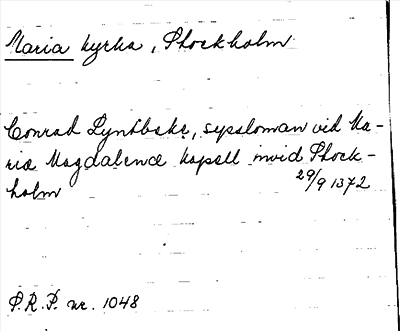 Maria kyrka, Stockholm
Conrad Lyntbeke, syssloman vid Ma-
ria Magdalena kapell invid Stock-
holm
29/9 1372
S.R.P. nr. 1048